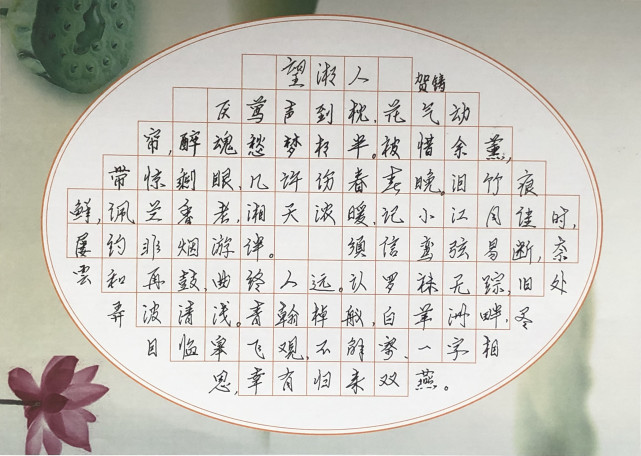 望湘人 贺铸
厌莺声到枕,花气动
帘,醉魂愁梦相半。被惜余薰,
带惊剩眼,几许伤春春晚。泪竹痕
鲜,佩兰香老,湘天浓暖,记小江风月佳时,
屡约非烟游伴。须信鸾弦易断,奈
云和再鼓,曲终人远。认罗袜无踪,旧处
弄波清浅。青翰棹舣,白苹洲畔,尽
目临皋飞观,不解寄、一字相
思,幸有归来双燕。